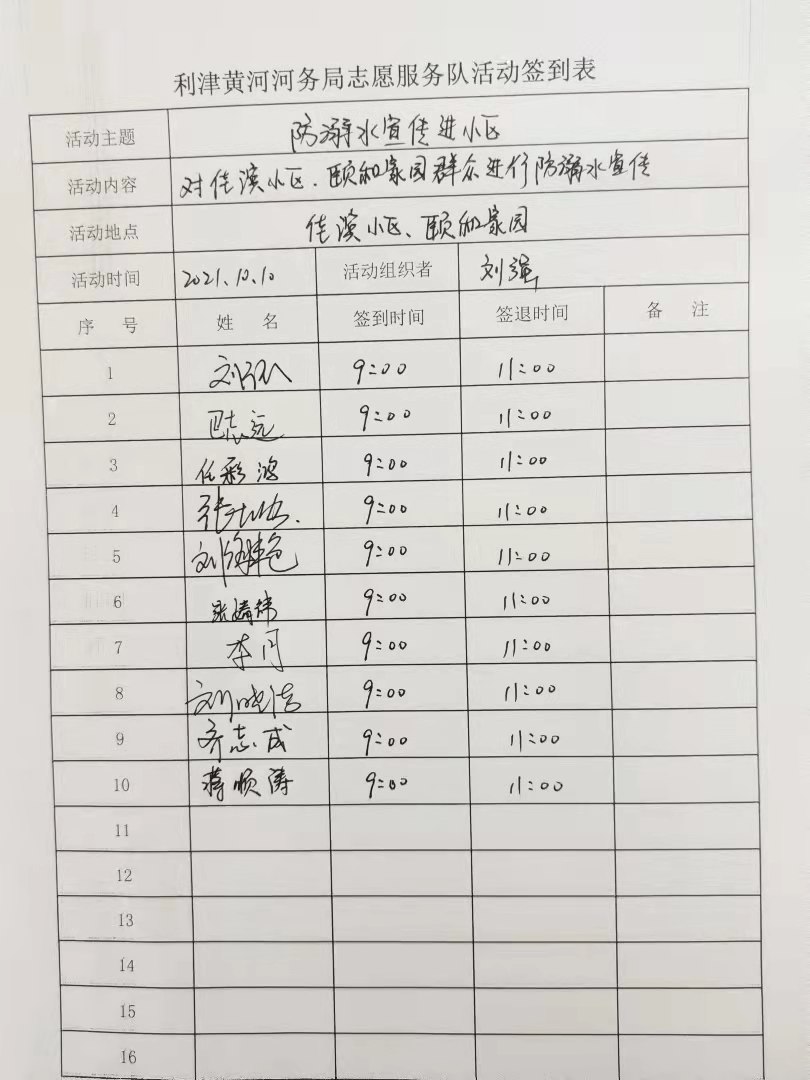 利津黄河河务局志愿服务队活动签到表
活动主题 防溺水宣传进小区
活动内容 对佳滨小区、颐和家园群众进行防溺水宣传
活动地点 佳滨小区、颐和家园
活动时间 2021.10.10 活动组织者 刘强
序 号 姓 名 签到时间 签退时间 备 注
1 9:00 11:00
2 巴志远 9:00 11:00
3 任彩鸿 9:00 11:00
4 9:00 11:00
5 9:00 11:00
6 张婧祎 9:00 11:00
7 李月 9:00 11:00
8 刘晓洁 9:00 11:00
9 齐志成 9:00 11:00
10 蒋顺涛 9:00 11:00
11
12
13
14
15
16